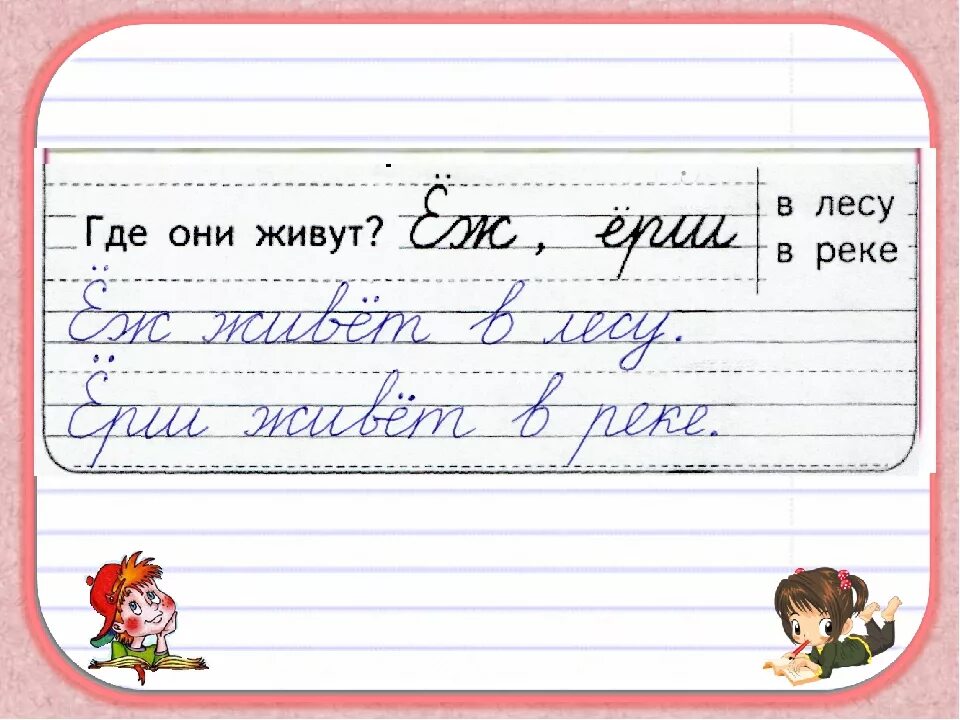 Где они живут? Ёж, ёрш
в лесу
в реке
Ёж живёт в лесу.
Ёрш живёт в реке.